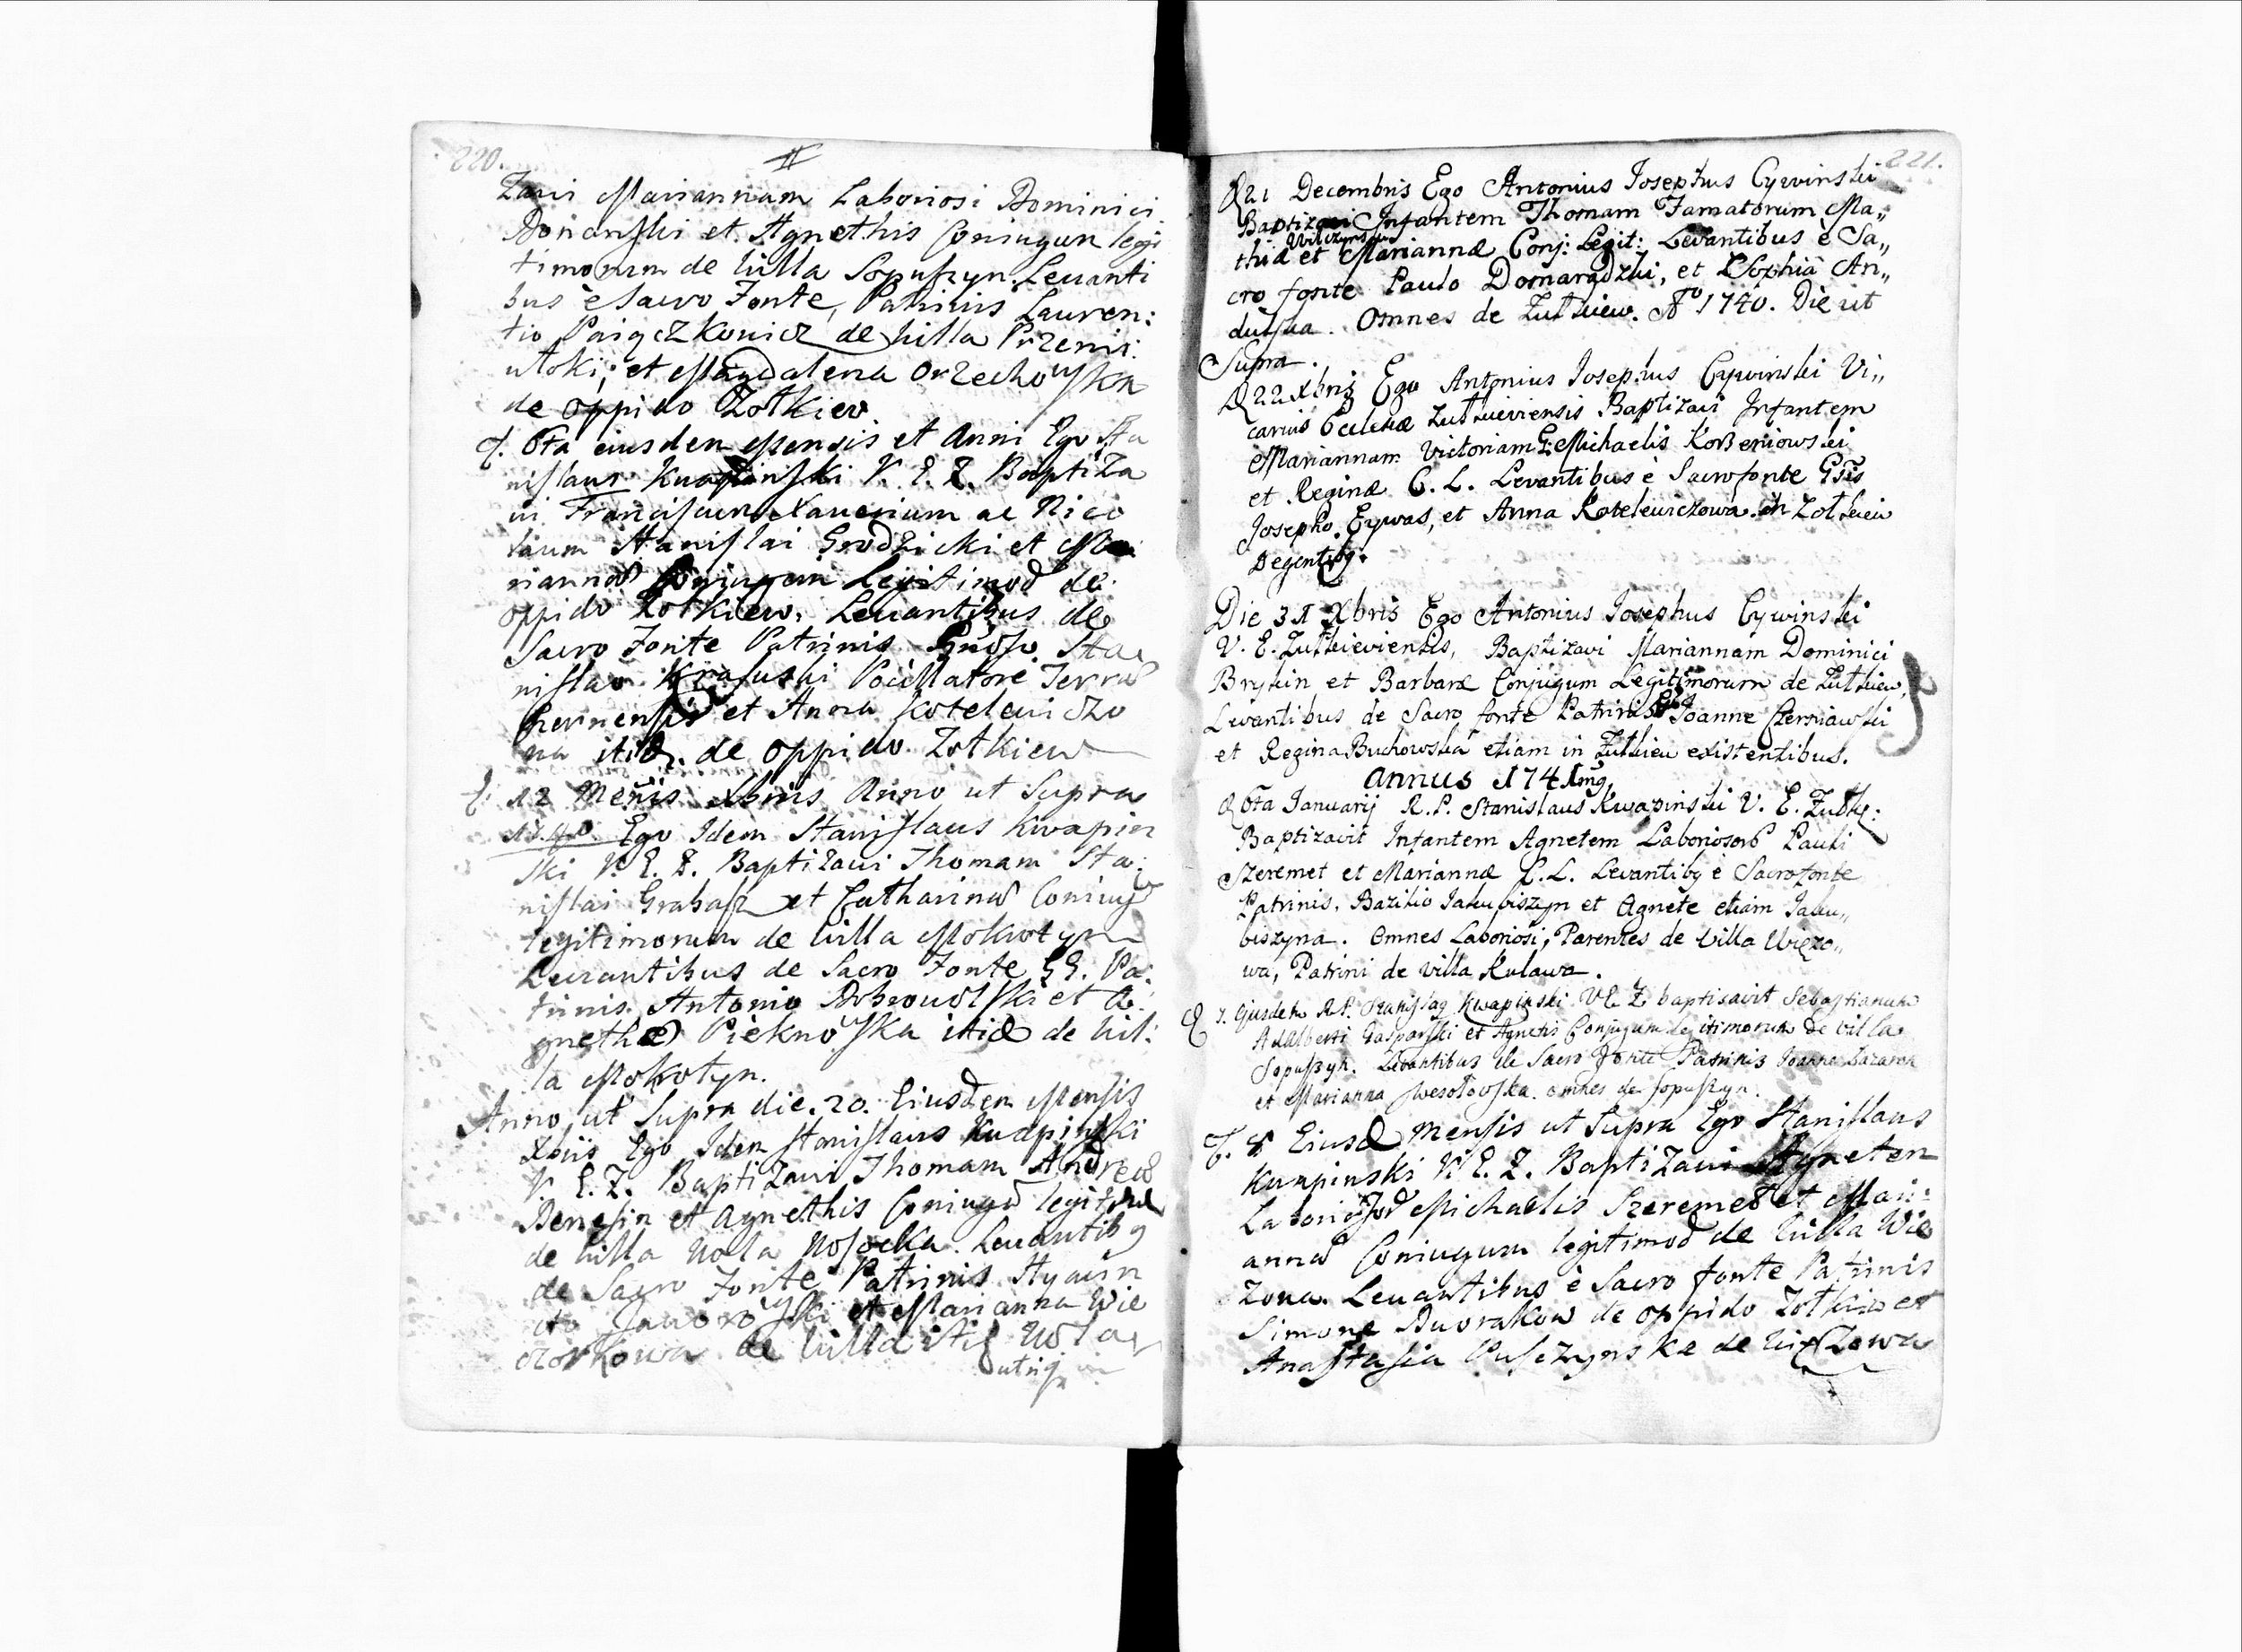 220.
Zavi Mariannam Laboriosi Dominici
et Agnethis Coniugum legi
timorum de Villa Sopuszyn. Levanti
bus è Sacro Fonte, Patrinis Lauren:
tio de Villa Przemi:
wtoki; et Magdalena Orzechowska
de oppido Zołkiew
d. 6ta eiusdem Mensis et Anni Ego Sta
nislaus Kwapinski V. E. Z. Baptiza
vi Franciscum Xaverium ac Nico
laum Stanislai Grodzicki et Ma
rianna Coniugum Legitimoꝝ de
oppido Zołkiew, Levantibus de
Sacro Fonte Patrinis Sta
nislao Krasuski Pocillatore Terræ
et Anna Kotelewiczo
wa itid. de oppido Zołkiew
D. 12 Mensis Xbris Anno ut Supra
1740 Ego Idem Stanislaus Kwapin
ski V. E. Z. Baptizavi Thomam Sta:
nislai Grabasz et Catharina Coniug
legitimorum de Villa Mokrotyn
Levantibus de Sacro Fonte GG. Pa:
trinis Antonio Dobrowolski et A:
gnetha Pieknowska itid de Vil:
la Mokrotyn.
Anno ut Supra die. 20. Eiusdem Mensis
Xbris Ego Idem Stanislaus Kwapinski
V. E. Z. Baptizavi Thomam Andreæ
et Agnethis Coniugum legitim
de Villa Wola Wysocka. Levantibq
de Sacro Fonte Patrinis Hyacin
cto Jaworowski et Marianna Wie
czorkowa de Villa itid Wola
utriq
221.
D 21 Decembris Ego Antonius Josephus Cywinski
Baptizavi Infantem Thomam Famatorum Ma„
Wilczynski
thiæ et Mariannæ Conj: Legit: Levantibus è Sa„
cro fonte Paulo Domaradzki, et Zophiâ An„
dulska. Omnes de Zułkiew. Aº 1740. Die ut
Supra.
D 22 Xbris Ego Antonius Josephus Cywinski Vi„
carius Ecclesiæ Zułkieviensis Baptizavi Infantem
Mariannam Victoriam G: Michaelis Korzeniowski
et Reginæ C. L. Levantibus è Sacro fonte
Josepho Eywas, et Anna Kotelewiczowa. in Zołkiew
Degentibq.
Die 31 Xbris Ego Antonius Josephus Cywinski
V. E. Zułkieviensis, Baptizavi Mariannam Dominici
Brykin et Barbaræ Conjugum Legitimorum de Zułkiew,
Levantibus de Sacro fonte Patrinis Joanne Czerniawski
et Regina Buchowska etiam in Zułkiew existentibus.
Annus 1741mq.
D 6ta Januarij R. P. Stanislaus Kwapinski V. E. Zułk:
Baptizavit Infantem Agnetem Laboriosoꝝ Pauli
Szeremet et Mariannæ C. L. Levantibq è Sacro fonte
Patrinis, Bazilio Jakubiszyn et Agnete etiam Jaku„
biszyna. Omnes Laboriosi, Parentes de Villa Więzo„
wa, Patrini de Villa Kulawa.
D 7. Ejusdem R.P. Stanislaq Kwapinski VE Z baptisavit Sebastianum
Adalberti Gasparski et Agnetis Conjugum legitimorum de villa
Sopuszyn. Levantibus de Sacro Fonte Patrinis Joanne Lazarek
et Marianna Wesołowska. omnes de Sopuszyn.
D. 8 Eiusd Mensis ut Supra Ego Stanislaus
Kwapinski V. E. Z. Baptizavi Agneten
Laboriosoꝝ Michaelis Szeremet et Mari:
anna Coniugum legitimoꝝ de Villa Wie
zowa. Levantibus è Sacro fonte Patrinis
Simone Dworakow de oppido Zołkiew et
Anastasia de Wiezowa